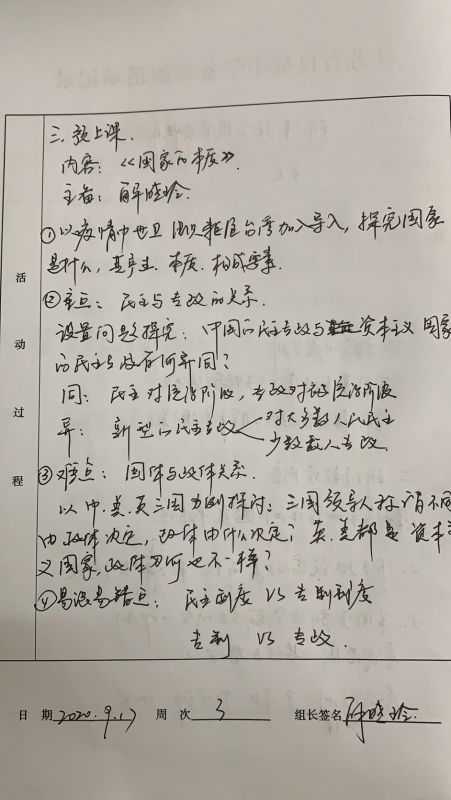 三、教上课.
内容：《国家的本质》.
主备：解晓玲.
①以疫情中世卫组织拒绝台湾加入导入，探究国家
是什么，其产生.本质.构成要素.
②重点：民主与专政的关系.
设置问题探究：中国的民主专政与资本主义国家
的民主专政有何异同？
同：民主对统治阶级，专政对被统治阶级
异：新型的民主专政
对大多数人民民主
少数敌人专政.
③难点：国体与政体关系.
以中.美.英三国为例探讨：三国领导人称谓不同
由政体决定，政体由什么决定？英.美都是资本主
义国家，政体为何也不一样？
④易混易错点：民主制度 VS 专制制度
专制 VS 专政.
活
动
过
程
日 期 2020.9.17 周 次 3 组长签名